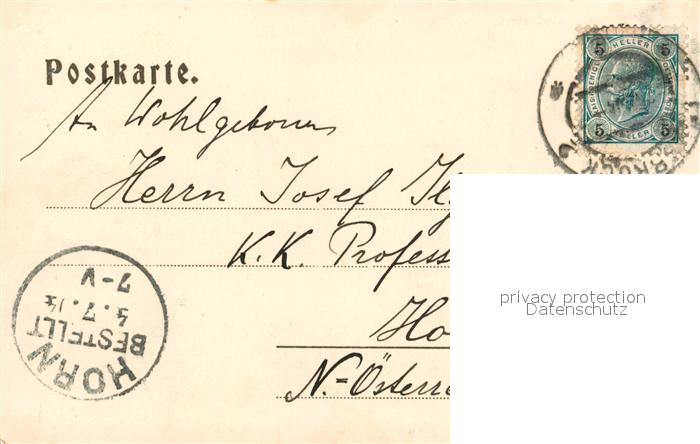 Postkarte.
5 HELLER 5
5 HELLER 5
An Wohlgeboren
Herrn Josef
K.K. Profess
Ho
N.-Österre
HORN
BESTELLT
7-V
privacy protection
Datenschutz